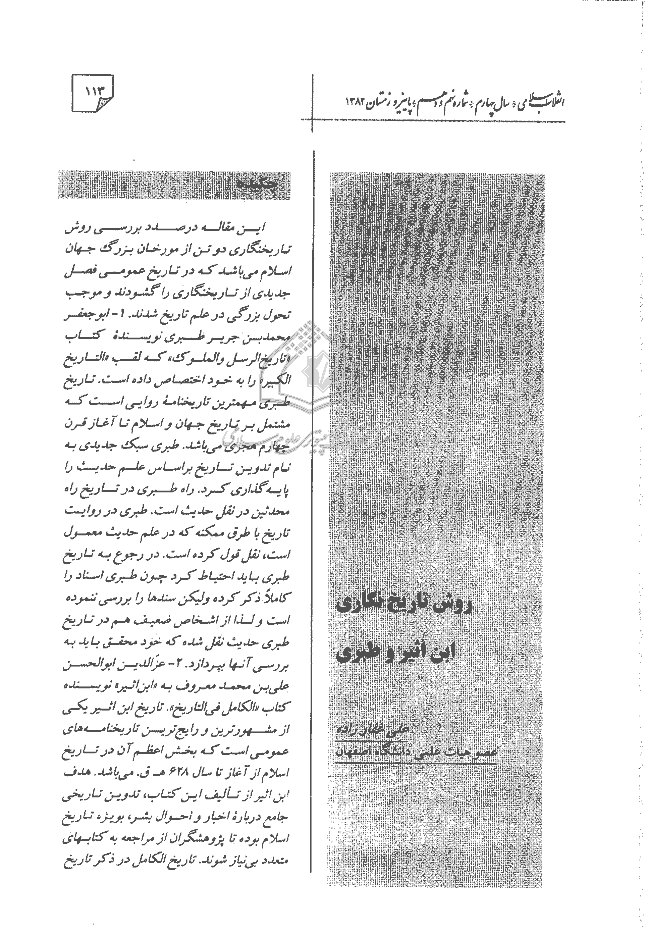 انقلاب اسلامی * سال چهارم * شماره نهم و دهم * پاییز و زمستان ۱۳۸۲
۱۱۳
روش تاریخ نگاری
ابن اثیر و طبری
علی غفارزاده
عضو هیات علمی دانشگاه اصفهان
چکیده
ایـن مقالـه درصـدد بررسـی روش
تـاریخنگاری دو تـن از مورخـان بـزرگ جهـان
اسـلام می‌باشـد کـه در تـاریخ عمومـی فصـل
جدیدی از تـاریخنگاری را گشـودند و موجـب
تحول بزرگی در علم تاریخ شدند. ۱- ابوجعفـر
محمدبـن جریـر طبـری نویسـندۀ کتـاب
«تاریخ‌الرسل والملوک» کـه لقـب «التـاریخ
الکبیر» را به خـود اختصـاص داده اسـت. تـاریخ
طبـری مـهمترین تاریخنامۀ روایـی اسـت کـه
مشتمل بـر تـاریخ جهـان و اسـلام تـا آغـاز قـرن
چهارم هجری می‌باشد. طبری سبک جدیـدی بـه
نـام تدویـن تـاریخ براسـاس علـم حدیـث را
پایـه‌گذاری کـرد. راه طـبری در تـاریخ راه
محدثین در نقل حدیث است. طبری در روایـت
تاریخ با طرق ممکنه که در علم حدیث معمـول
است، نقل قول کرده است. در رجوع بـه تـاریخ
طبری بـاید احتیـاط کـرد چـون طـبری اسـناد را
کاملاً ذکر کرده ولیکن سندها را بررسی ننموده
است و لـذا از اشـخاص ضعیـف هـم در تـاریخ
طبری حدیث نقل شده که خود محقـق بـاید بـه
بررسی آنـها بپـردازد. ۲- عزّالدیـن ابوالحسـن
علی‌بن محمـد معـروف بـه «ابن‌اثیر» نویسـنده
کتاب «الکامل فی‌التاریخ». تـاریخ ابن اثـیر یکـی
از مشـهورترین و رایج‌تریـن تاریخنامـه‌های
عمومـی اسـت کـه بخش اعظـم آن در تـاریخ
اسلام از آغاز تا سال ۶۲۸ هـ.ق. می‌باشد. هدف
ابن اثیر از تـألیف ایـن کتـاب، تدویـن تـاریخی
جامع دربارۀ اخبار و احـوال بشـر، بویـژه تـاریخ
اسلام بوده تا پژوهشگران از مراجعه به کتابـهای
متعدد بی‌نیاز شوند. تاریخ الکامل در ذکر تاریخ